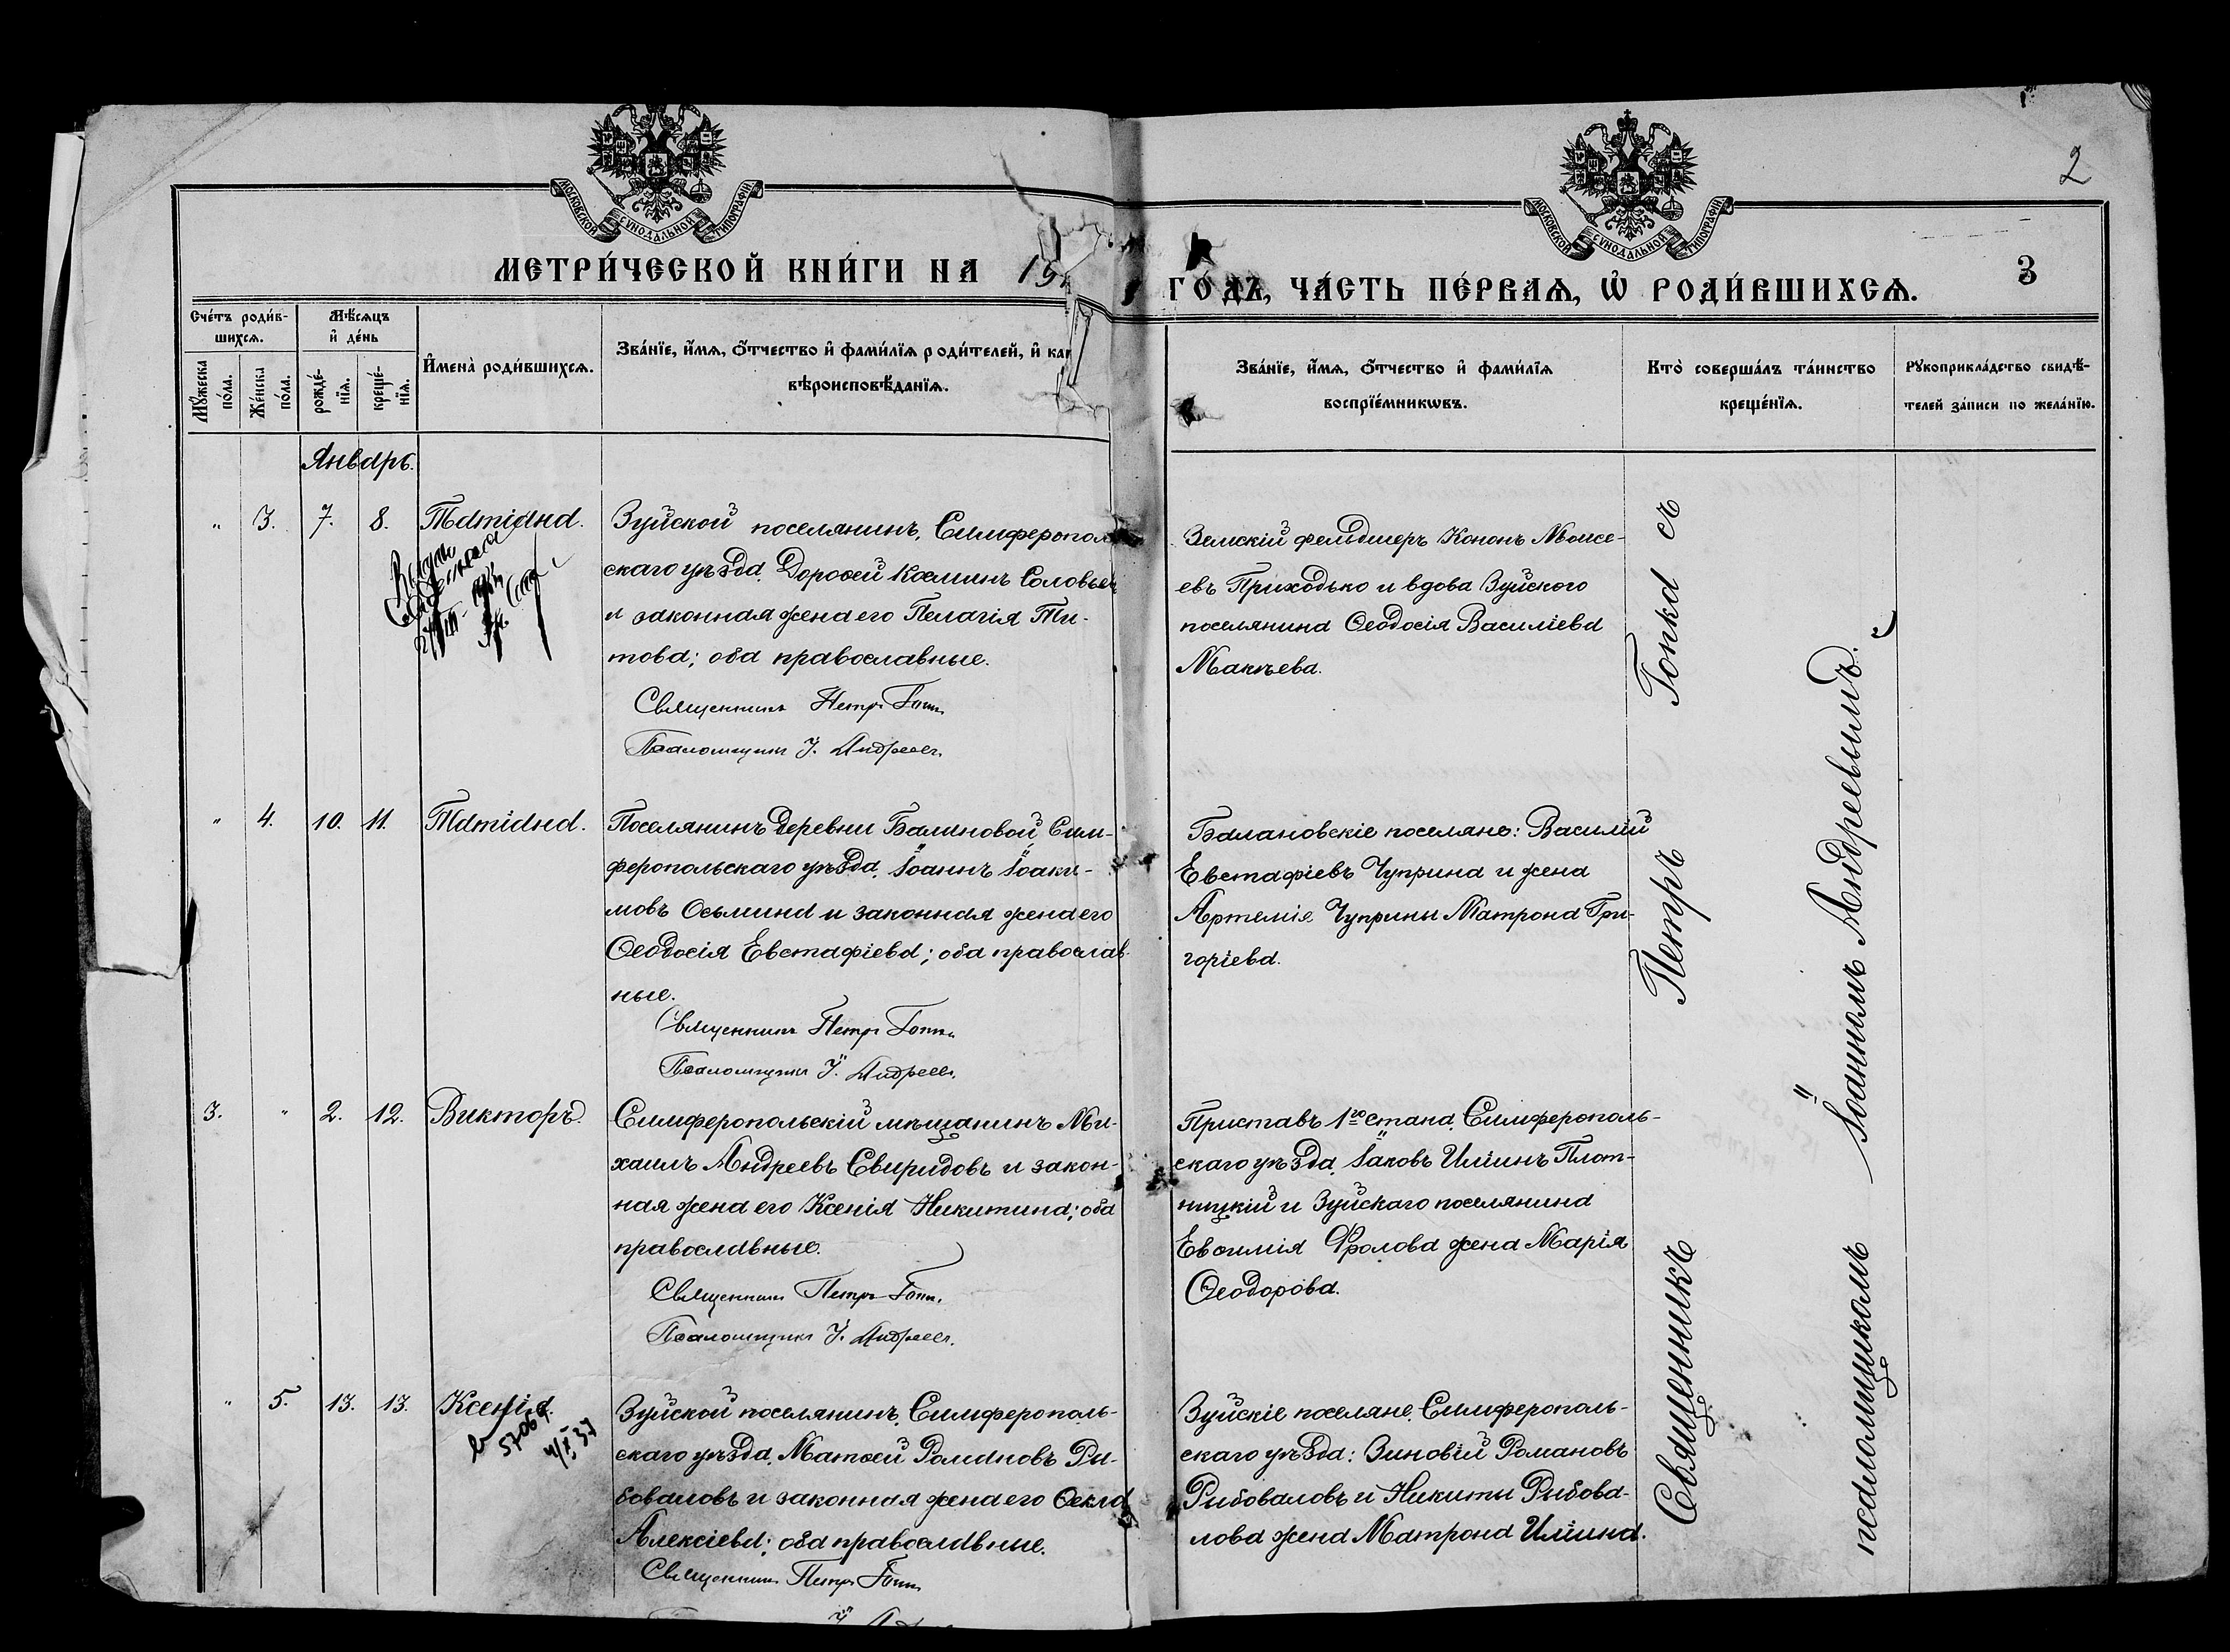 2
МОСКОВСКОЙ СУНОДАЛЬНОЙ ТИПОГРАФІИ
МОСКОВСКОЙ СУНОДАЛЬНОЙ ТИПОГРАФІИ
МЕТРИ́ЧЕСКОЙ КНИ́ГИ НА 19
ГО́ДЪ, ЧА́СТЬ ПЕ́РВАѦ, Ѡ҆ РОДИ́ВШИХСѦ.
3
Сче́тъ роди́в-
шихсѧ.
Мѣ́сѧцъ
и҆ де́нь
Мꙋ́жеска
по́ла.
Же́нска
по́ла.
рожде́-
нїѧ.
креще́-
нїѧ.
И҆мена̀ роди́вшихсѧ.
Зва́нїе, и҆́мѧ, ѻ҆́тчество и҆ фами́лїѧ роди́телей, и҆
вѣроисповѣ́данїѧ.
Зва́нїе, и҆́мѧ, ѻ҆́тчество и҆ фами́лїѧ
воспрїе́мникѡвъ.
Кто̀ соверша́лъ та́инство
креще́нїѧ.
Рꙋкоприкла́дство свидѣ́-
телей за́писи по жела́нїю.
Январь.
" 3. 7. 8. Татіана.
Зуйской поселянинъ, Симферополь
скаго уѣзда, Дороѳей Косминъ Соловьев
и законная жена его Пелагія Ти-
това; оба православные.
Священникъ Петръ Гопка
Псаломщикъ І. Андреевъ.
Земскій фельдшеръ Кононъ Моисе-
евъ Приходько и вдова Зуйского
поселянина Ѳеодосія Василіева
Макѣева.
" 4. 10. 11. Татіана.
Поселянинъ деревни Балановой, Сим-
феропольскаго уѣзда, Іоаннъ Іоаки-
мовъ Осьмина и законная жена его
Ѳеодосія Евстафіева; оба православ-
ные.
Священникъ Петръ Гопка
Псаломщикъ І. Андреевъ.
Балановскіе поселяне: Василій
Евстафіевъ Чуприна и жена
Артемія Чуприны Матрона Гри-
горіева.
3. " 2. 12. Викторъ.
Симферопольскій мѣщанинъ Ми-
хаилъ Андреевъ Свиридовъ и закон-
ная жена его Ксенія Никитина; оба
православные.
Священникъ Петръ Гопка
Псаломщикъ І. Андреевъ.
Приставъ 1го стана, Симферополь-
скаго уѣзда, Іаковъ Иліинъ Плот-
ницкій и Зуйскаго поселянина
Евѳимія Фролова жена Марія
Ѳеодорова.
" 5. 13. 13. Ксенія.
57069
Зуйской поселянинъ, Симферополь-
скаго уѣзда, Матѳей Романовъ Ры-
боваловъ и законная жена его Ѳекла
Алексіева; оба православные.
Священникъ Петръ Гопка
Зуйскіе поселяне, Симферополь-
скаго уѣзда: Зиновій Романовъ
Рыбоваловъ и Никиты Рыбова-
лова жена Матрона Иліина.
Священникъ Петръ Гопка съ
псаломщикомъ Іоанномъ Андреевымъ.